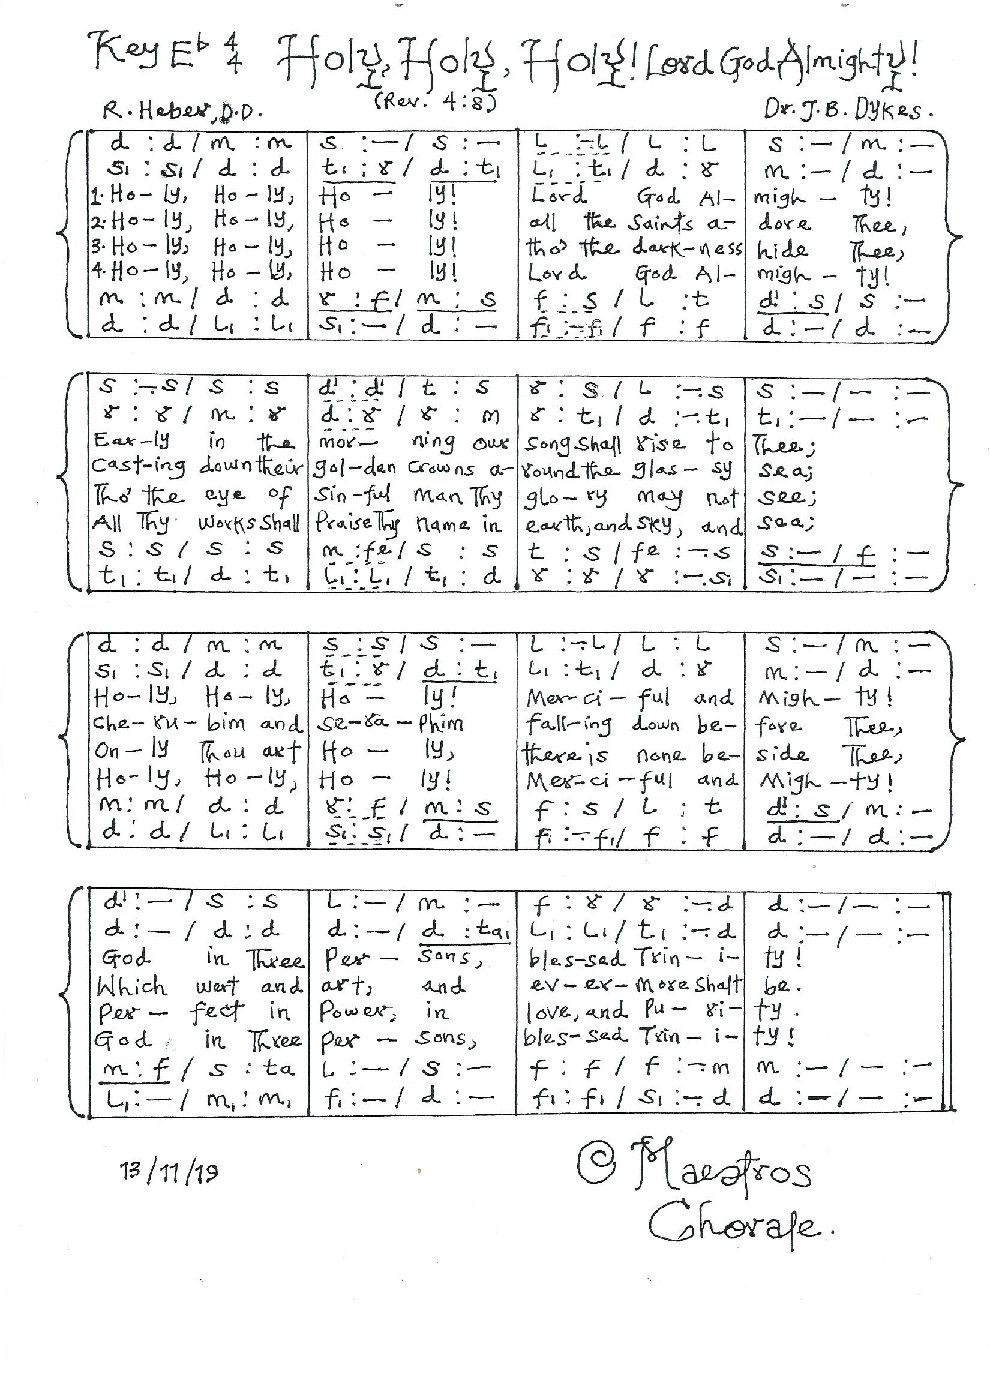 Key E♭ 4/4 Holy, Holy, Holy! Lord God Almighty!
(Rev. 4:8)
R. Heber, D.D. Dr. J. B. Dykes.
d : d / m : m | s : — / s : — | L :-L / L : L | s : — / m : —
s₁ : s₁ / d : d | t₁ : r / d : t₁ | L₁ : t₁ / d : r | m : — / d : —
1. Ho - ly, Ho - ly, | Ho - ly! | Lord God Al- | migh - ty!
2. Ho - ly, Ho - ly, | Ho - ly! | all the Saints a- | dore Thee,
3. Ho - ly, Ho - ly, | Ho - ly! | tho' the dark-ness | hide Thee,
4. Ho - ly, Ho - ly, | Ho - ly! | Lord God Al- | migh - ty!
m : m / d : d | r : f / m : s | f : s / L : t | d' : s / s : —
d : d / L₁ : L₁ | s₁ : — / d : — | f₁ :-f₁ / f : f | d : — / d : —
s :-s / s : s | d' : d' / t : s | r : s / L :-s | s : — / — : —
r : r / m : r | d : r / r : m | r : t₁ / d :-t₁ | t₁ : — / — : —
Ear-ly in the | mor- ning our | song shall rise to | Thee;
Cast-ing down their | gol-den crowns a- | round the glas - sy | sea;
Tho' the eye of | Sin-ful Man Thy | glo-ry may not | see;
All Thy works shall | Praise Thy name in | earth, and sky, and | sea;
s : s / s : s | m : fe / s : s | t : s / fe :-s | s : — / f : —
t₁ : t₁ / d : t₁ | L₁ : L₁ / t₁ : d | r : r / r :-s₁ | s₁ : — / — : —
d : d / m : m | s : s / s : — | L :-L / L : L | s : — / m : —
s₁ : s₁ / d : d | t₁ : r / d : t₁ | L₁ : t₁ / d : r | m : — / d : —
Ho-ly, Ho-ly, | Ho - ly! | Mer-ci - ful and | Migh - ty!
Che-ru-bim and | se-ra-phim | fall-ing down be- | fore Thee,
On-ly Thou art | Ho - ly, | there is none be- | side Thee,
Ho-ly, Ho-ly, | Ho - ly! | Mer-ci-ful and | Migh-ty!
m : m / d : d | r : f / m : s | f : s / L : t | d' : s / m : —
d : d / L₁ : L₁ | s₁ : s₁ / d : — | f₁ :-f₁ / f : f | d : — / d : —
d' : — / s : s | L : — / m : — | f : r / r :-d | d : — / — : —
d : — / d : d | d : — / d : ta₁ | L₁ : L₁ / t₁ :-d | d : — / — : —
God in Three | Per - sons, | bles-sed Trin - i- | ty!
Which wert and | art, and | ev-er-more shalt | be.
Per - fect in | Power, in | love, and Pu - ri- | ty.
God in Three | Per - sons, | bles-sed Trin - i- | ty!
m : f / s : ta | L : — / s : — | f : f / f :-m | m : — / — : —
L₁ : — / m₁ : m₁ | f₁ : — / d : — | f₁ : f₁ / s₁ :-d | d : — / — : —
13/11/19
© Maestros
Chorale.